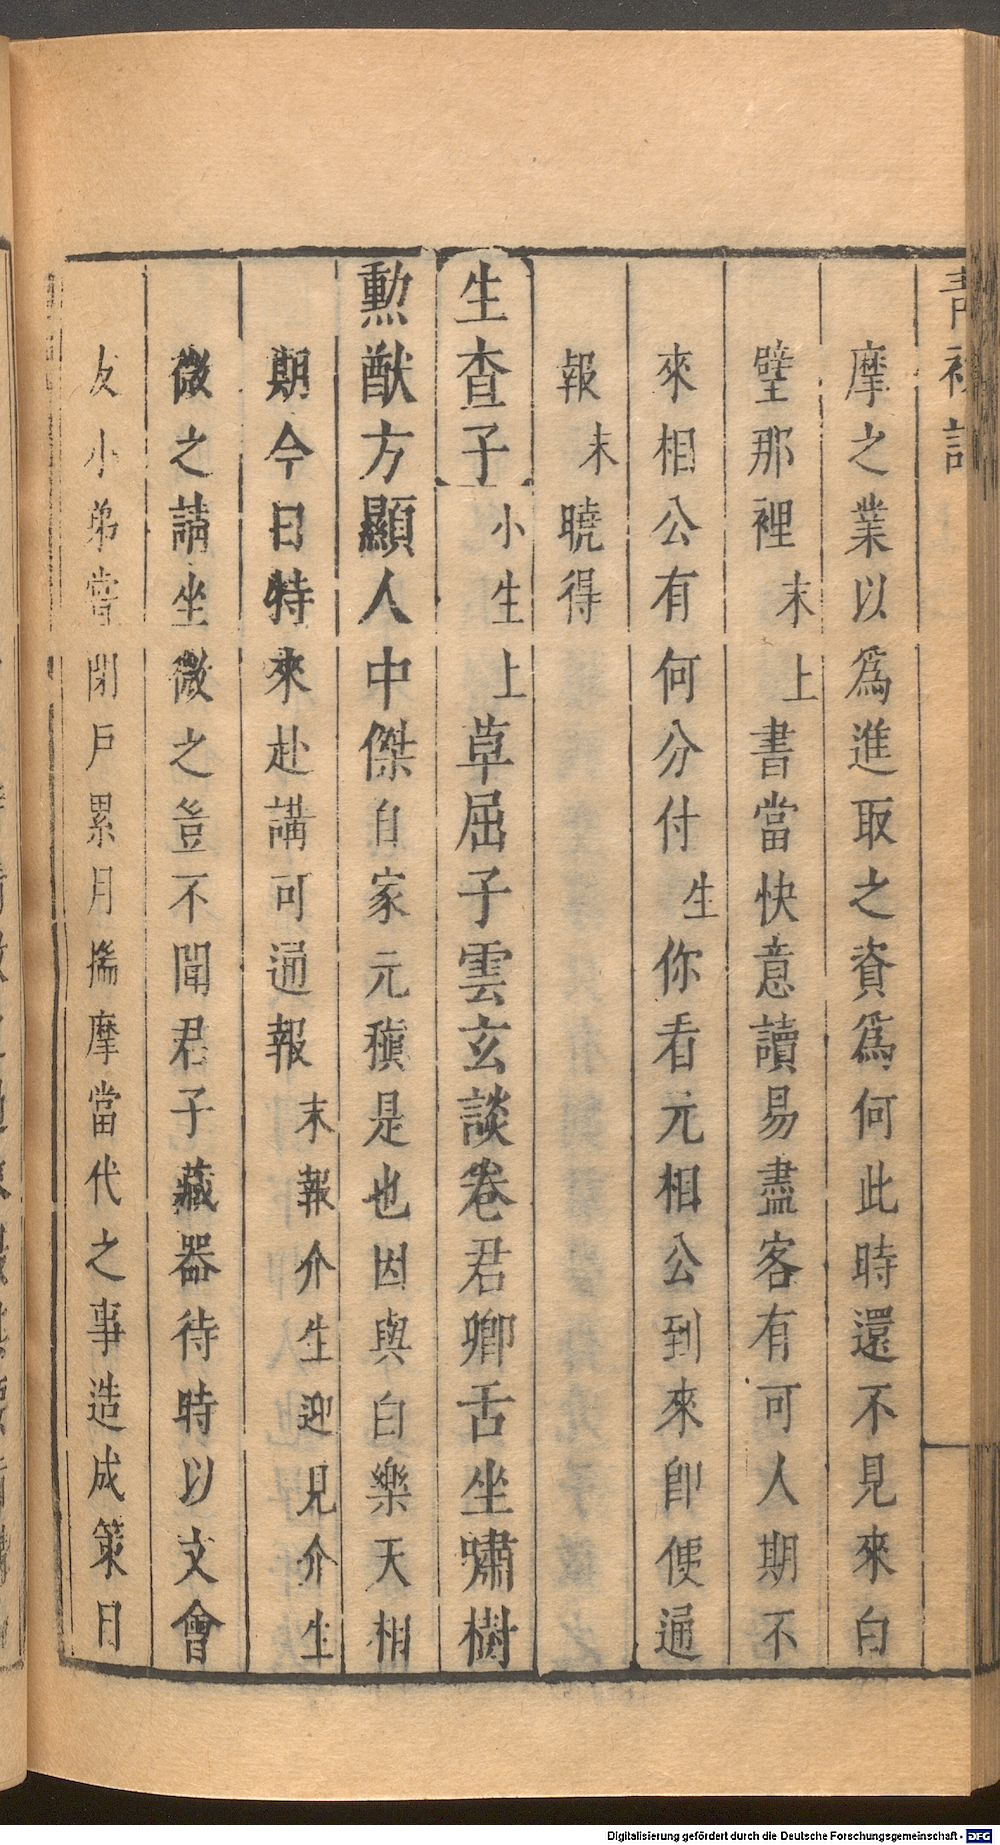 青衫記
摩之業以爲進取之資爲何此時還不見來白
壁那裡末上書當快意讀易盡客有可人期不
來相公有何分付生你看元相公到來卽便通
報末曉得
生查子小生上草屈子雲玄談卷君卿舌坐嘯樹
勲猷方顯人中傑自家元稹是也因與白樂天相
期今日特來赴講可通報末報介生迎見介生
微之請坐微之豈不聞君子藏器待時以文會
友小弟嘗閉戶累月揣摩當代之事造成策目
Digitalisierung gefördert durch die Deutsche Forschungsgemeinschaft - DFG